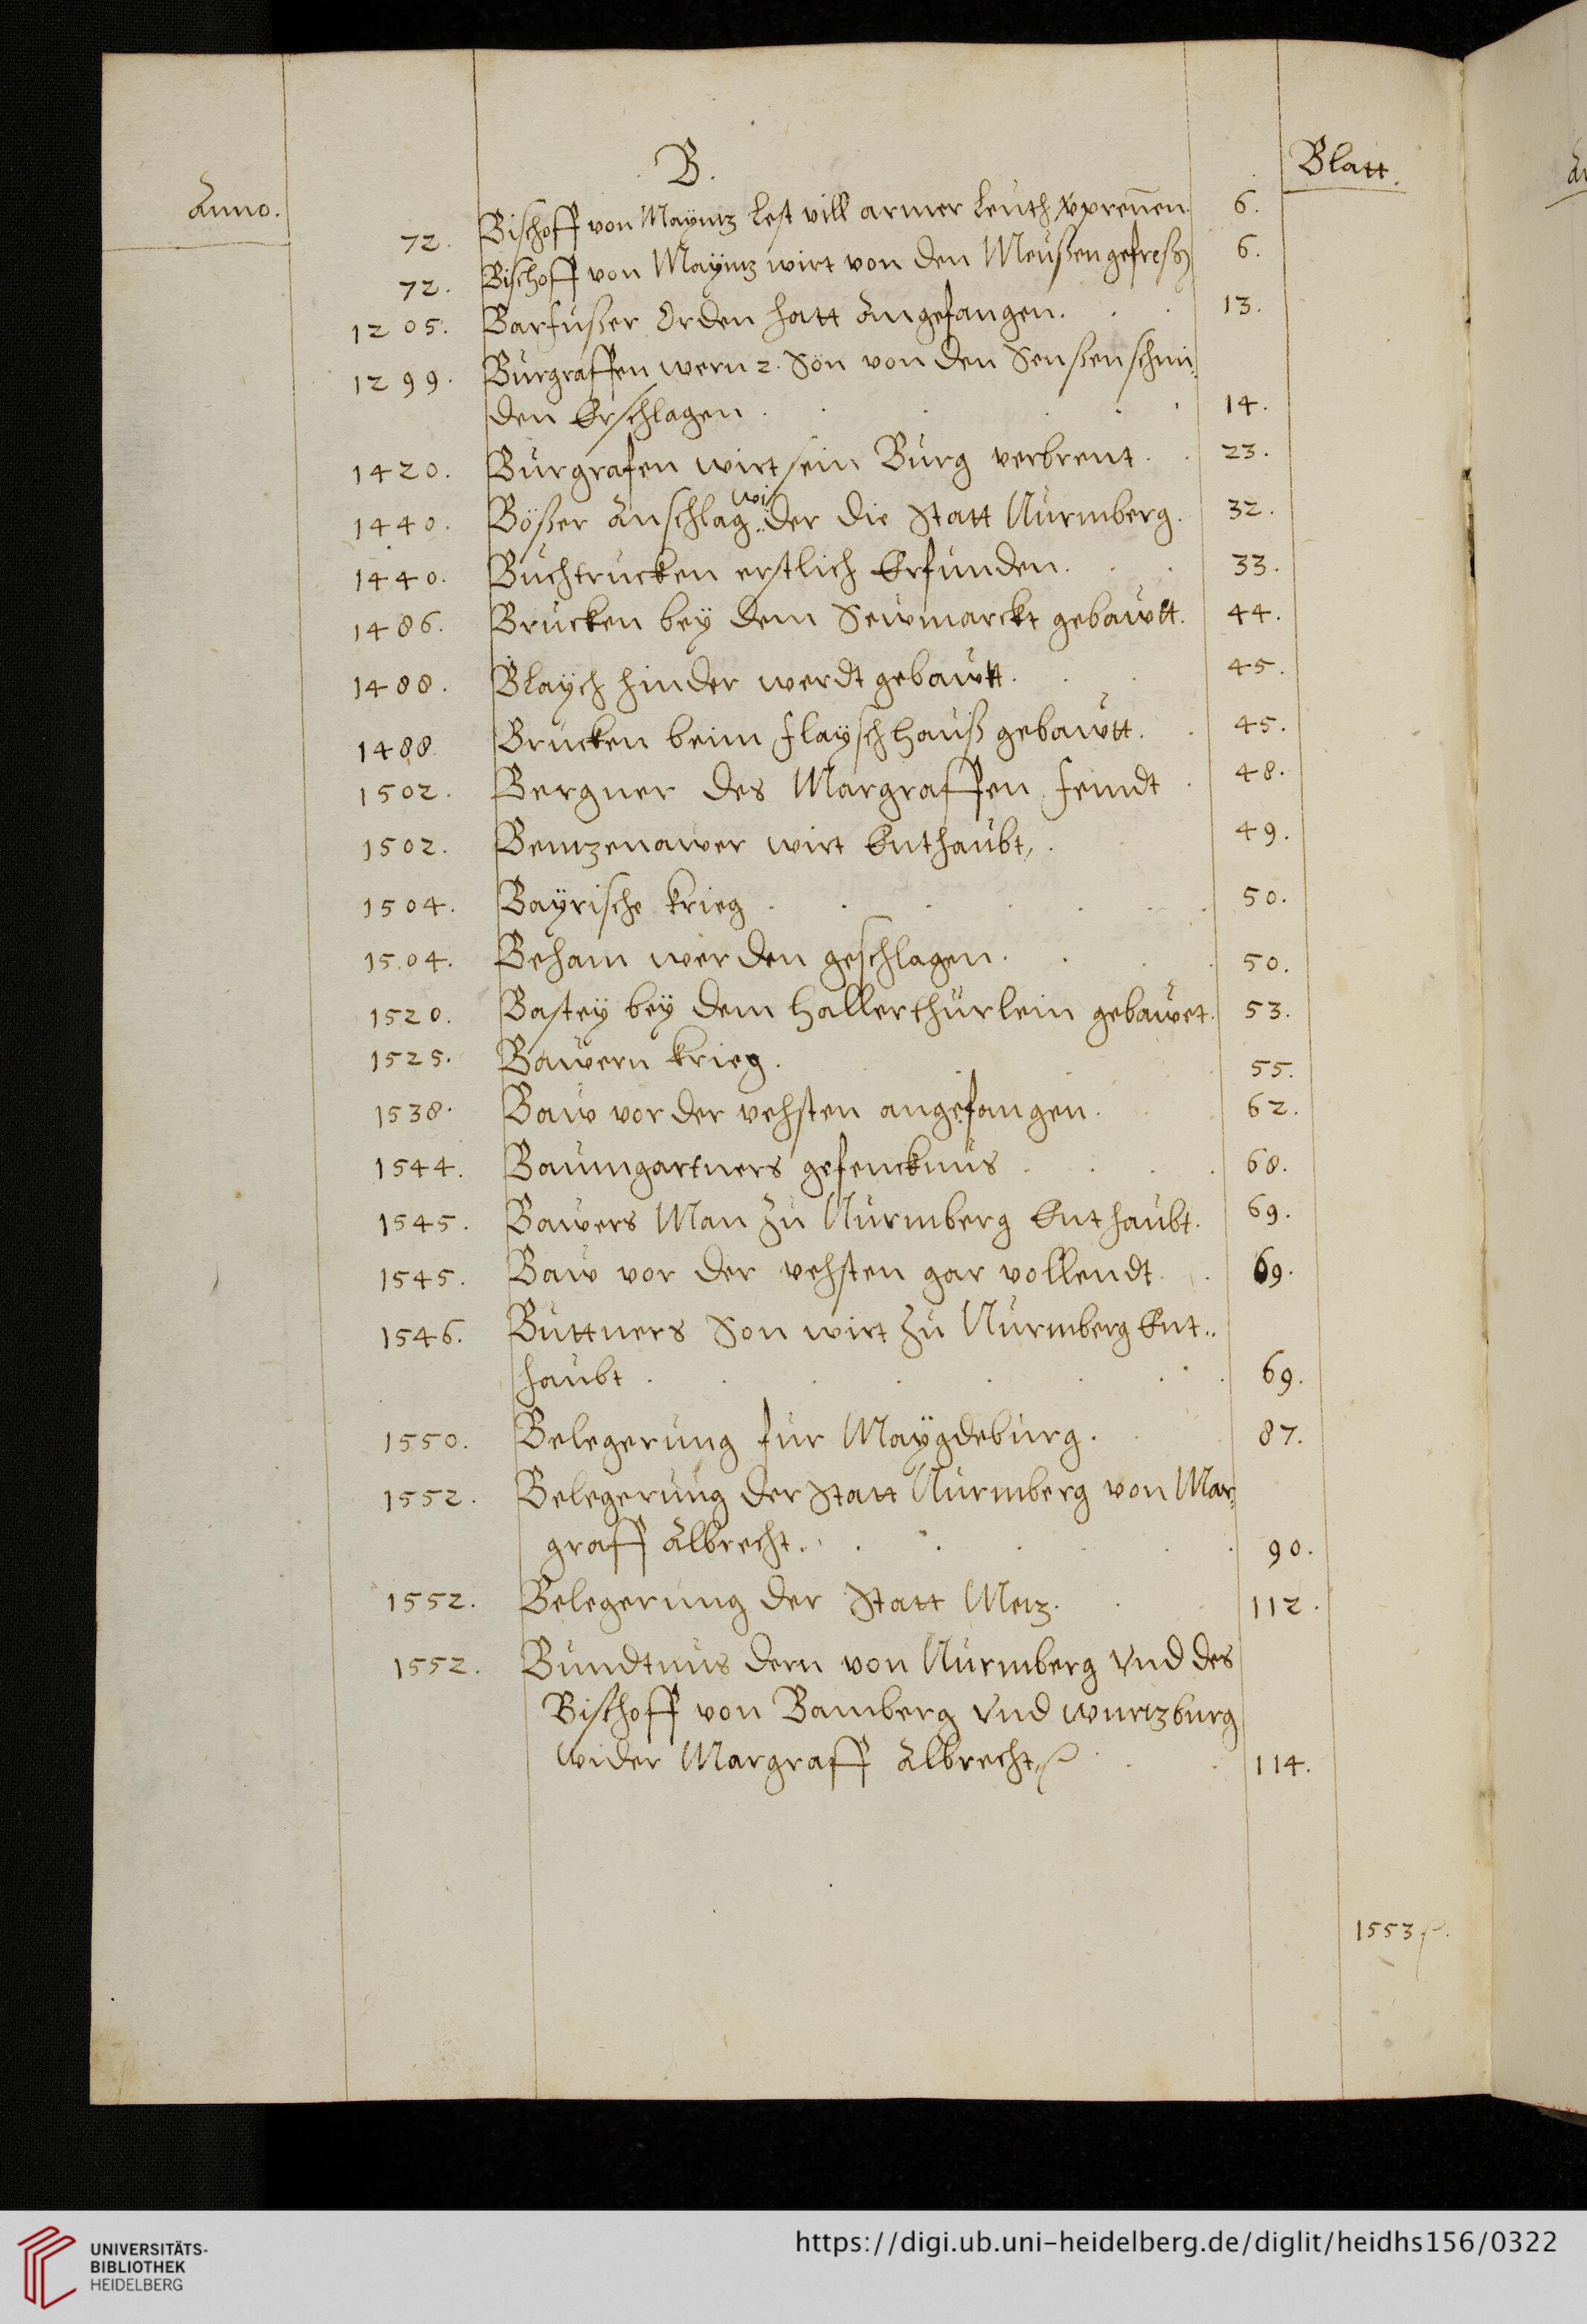 B.
Anno. Blatt.
72. Bischoff von Mayntz lest vill armer Leuth v̈prennen. 6.
72. Bischoff von Mayntz wirt von den Meüßen gefreßn 6.
1205. Barfüßer Orden hatt Angefangen. 13.
1299. Burgraffen wern 2. Sön von den Senßenschmi-
den Erschlagen 14.
1420. Burgrafen wirt sein Burg verbrent. 23.
1440. Bößer Anschlag wider die Statt Nürmberg. 32.
1440. Buchtrucken erstlich Erfunden. 33.
1486. Brucken bey dem Sewmarckt gebawtt. 44.
1488. Blaych hinder werdt gebawtt. 45.
1488. Brucken beim flayschhauß gebawtt. 45.
1502. Bergner des Margraffen feindt. 48.
1502. Bentzenawer wirt Enthaubt. 49.
1504. Bayrische krieg 50.
1504. Beham werden geschlagen. 50.
1520. Bastey bey dem Hallerthürlein gebawet. 53.
1525. Bawern krieg. 55.
1538. Baw vor der vehsten angefangen. 62.
1544. Baumgartners gefencknus 68.
1545. Bawers Man zu Nürmberg Enthaubt. 69.
1545. Baw vor der vehsten gar vollendt. 69.
1546. Buttners Son wirt zu Nürmberg Ent..
haubt 69.
1550. Belegerung für Maygdeburg. 87.
1552. Belegerung der Statt Nürmberg von Mar-
graff Albrecht. 90.
1552. Belegerung der Statt Metz. 112.
1552. Bundtnus dern von Nürmberg vnd des
Bischoff von Bamberg vnd wurtzburg
wider Margraff Albrecht 114.
1553
UNIVERSITÄTS-
BIBLIOTHEK
HEIDELBERG
https://digi.ub.uni-heidelberg.de/diglit/heidhs156/0322